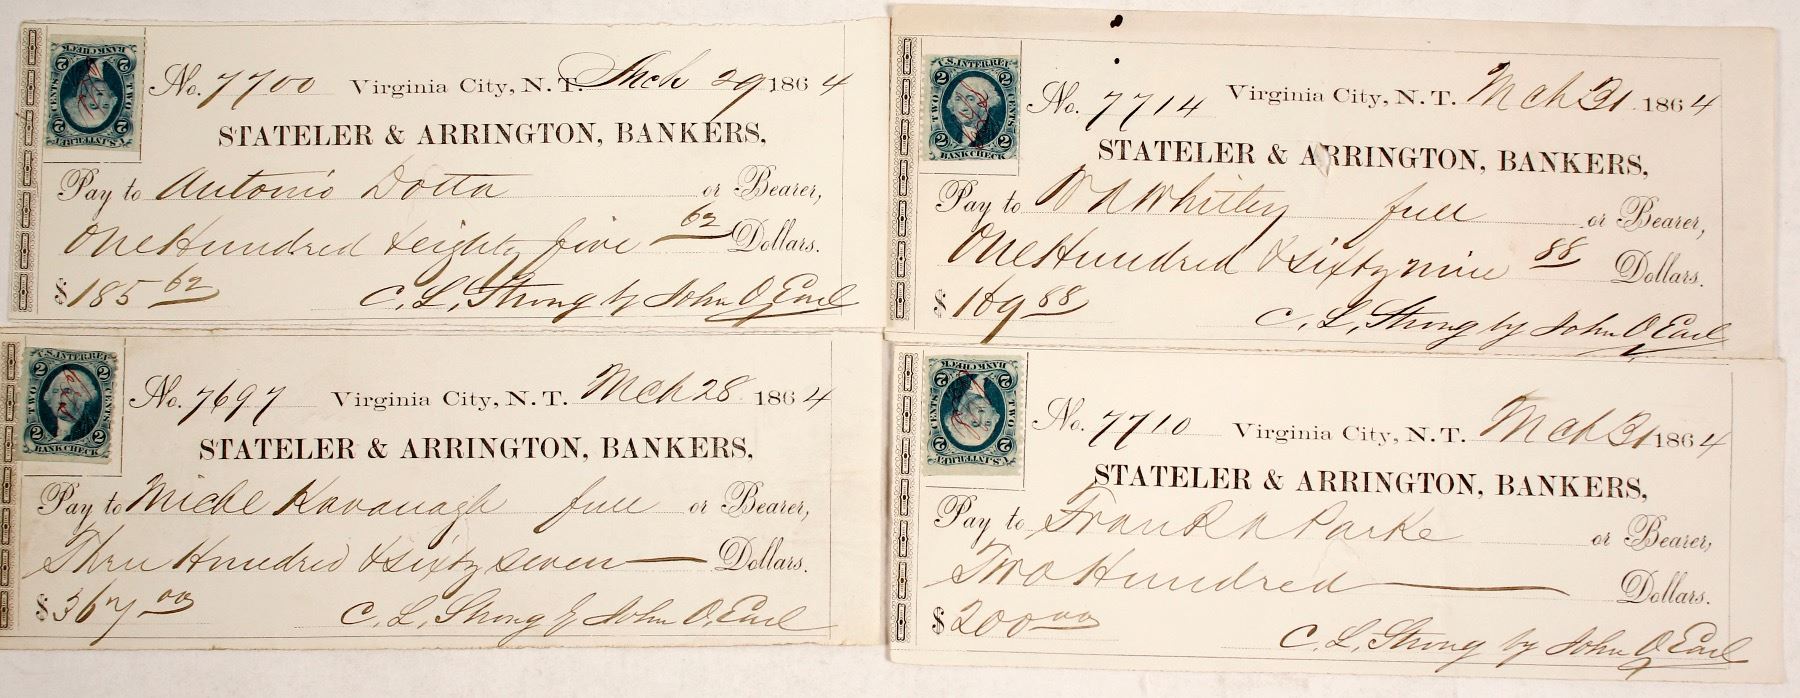 U.S. INTER. REV.
2 2
TWO CENTS
2 2
BANK CHECK
No. 7700 Virginia City, N.T. Mch 29 1864
STATELER & ARRINGTON, BANKERS,
Pay to Antonio Dotta or Bearer,
One Hundred & eighty five 62 Dollars.
$185 62 C. L. Strong by John O. Earl
U.S. INTER. REV.
2 2
TWO CENTS
2 2
BANK CHECK
No. 7714 Virginia City, N.T. Mch 31 1864
STATELER & ARRINGTON, BANKERS,
Pay to Whitley full or Bearer,
One Hundred & sixty nine 88 Dollars.
$169 88 C. L. Strong by John O. Earl
U.S. INTER. REV.
2 2
TWO CENTS
2 2
BANK CHECK
No. 7697 Virginia City, N.T. Mch 28 1864
STATELER & ARRINGTON, BANKERS,
Pay to Michl Kavanagh full or Bearer,
Three Hundred & sixty seven Dollars.
$367 00 C. L. Strong by John O. Earl
U.S. INTER. REV.
2 2
TWO CENTS
2 2
BANK CHECK
No. 7710 Virginia City, N.T. Mch 31 1864
STATELER & ARRINGTON, BANKERS,
Pay to Frank A Parke or Bearer,
Two Hundred Dollars.
$200 00 C. L. Strong by John O. Earl